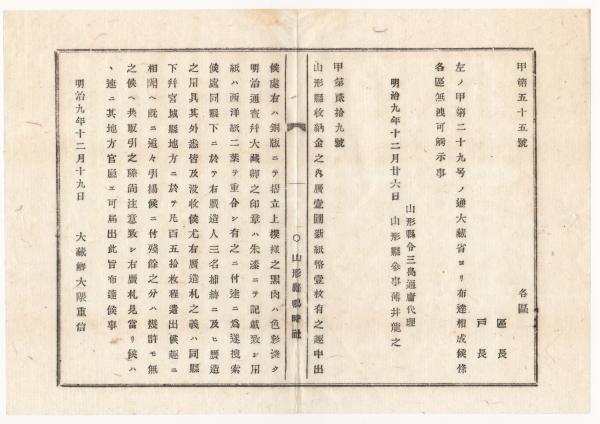 甲第五十五號
各區
區長
戸長
左ノ甲第二十九号ノ通大藏省ヨリ布達相成候條
各區無洩可觸示事
明治九年十二月廿六日
山形縣令三島通庸代理
山形縣參事薄井龍之
甲第貳拾九號
山形縣收納金之內贋壹圓新紙幣壹枚有之趣申出
○山形縣鴨時社
候處右ハ銅版ニテ摺立上模樣之黑肉ハ色彩淡ク
明治通寳幷大藏卿之印章ハ朱漆ニテ記載致シ用
紙ハ西洋紙二葉ヲ重合シ有之ニ付速ニ爲逐搜索
候處同縣下ニ於テ右贋造人三名捕縛ニ及ヒ贋造
之用具其外悉皆及沒收候尤右贋造札之義ハ同縣
下幷宮城縣地方ニ於テ凡百五拾枚程遣出候趣ニ
相聞ヘ既ニ追々引揚候ニ付殘餘之分ハ幾許モ無
之候ヘ共取引之際尚注意致シ右贋札見當リ候ハ
、速ニ其地方官廳エ可届出此旨布達候事
明治九年十二月十九日
大藏卿大隈重信